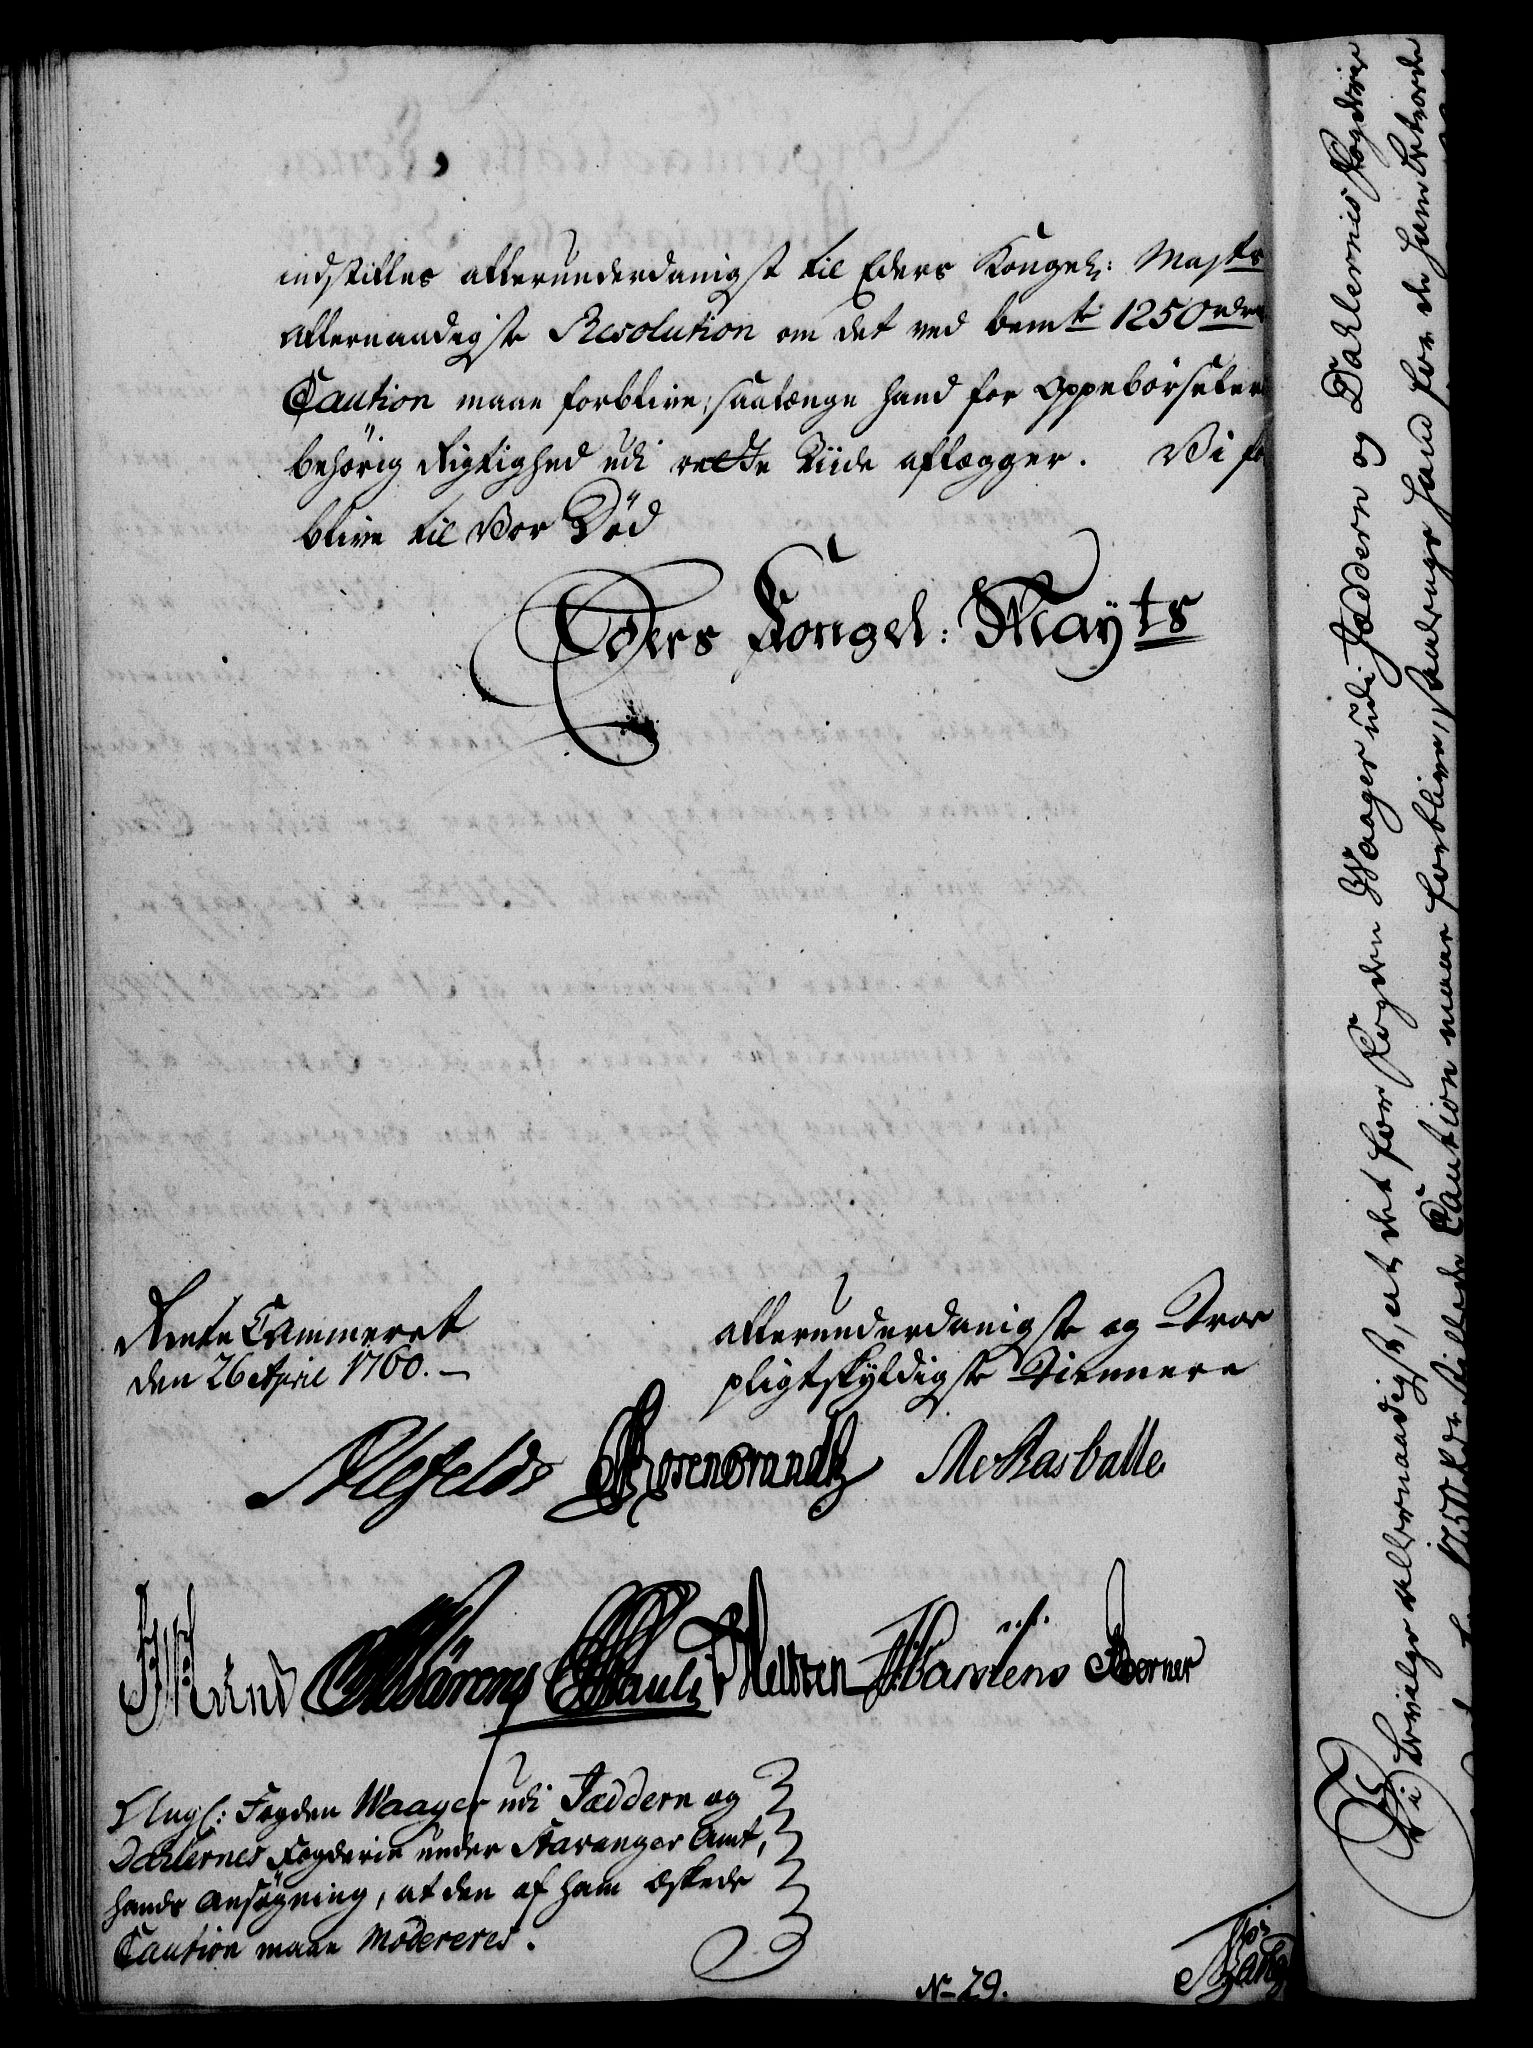 indstilles allerunderdanigst til Eders Kongel: Majts
allernaadigste Resolution om det ved bemte 1250 rdrs
Caution maae forblive, saalænge hand for Oppebörseler
behörig Rigtighed udi rette Tiide aflægger. Vi for
blive til Vor Död
Eders Kongel: Mayts
Rente Cammeret
den 26 April 1760. —
allerunderdanigste og Troe
pligtskyldigste Tiennere
Alefeldt Rosencrandtz
Pauli Neltzen Martens Berner
Angl: Fogden Waager udi Jæddern og
Dahlernes Fogderie under Stavanger Amt,
hands Ansøgning, at den af ham æskede
Caution maae Modereres.
No 29.
Vi bevilge allernaadigst, at det for Fogden Waager udi Jæddern og Dahlernes Fogderie
1250 rdr stillede Caution maae forblive, saalænge hand for de ham betroede